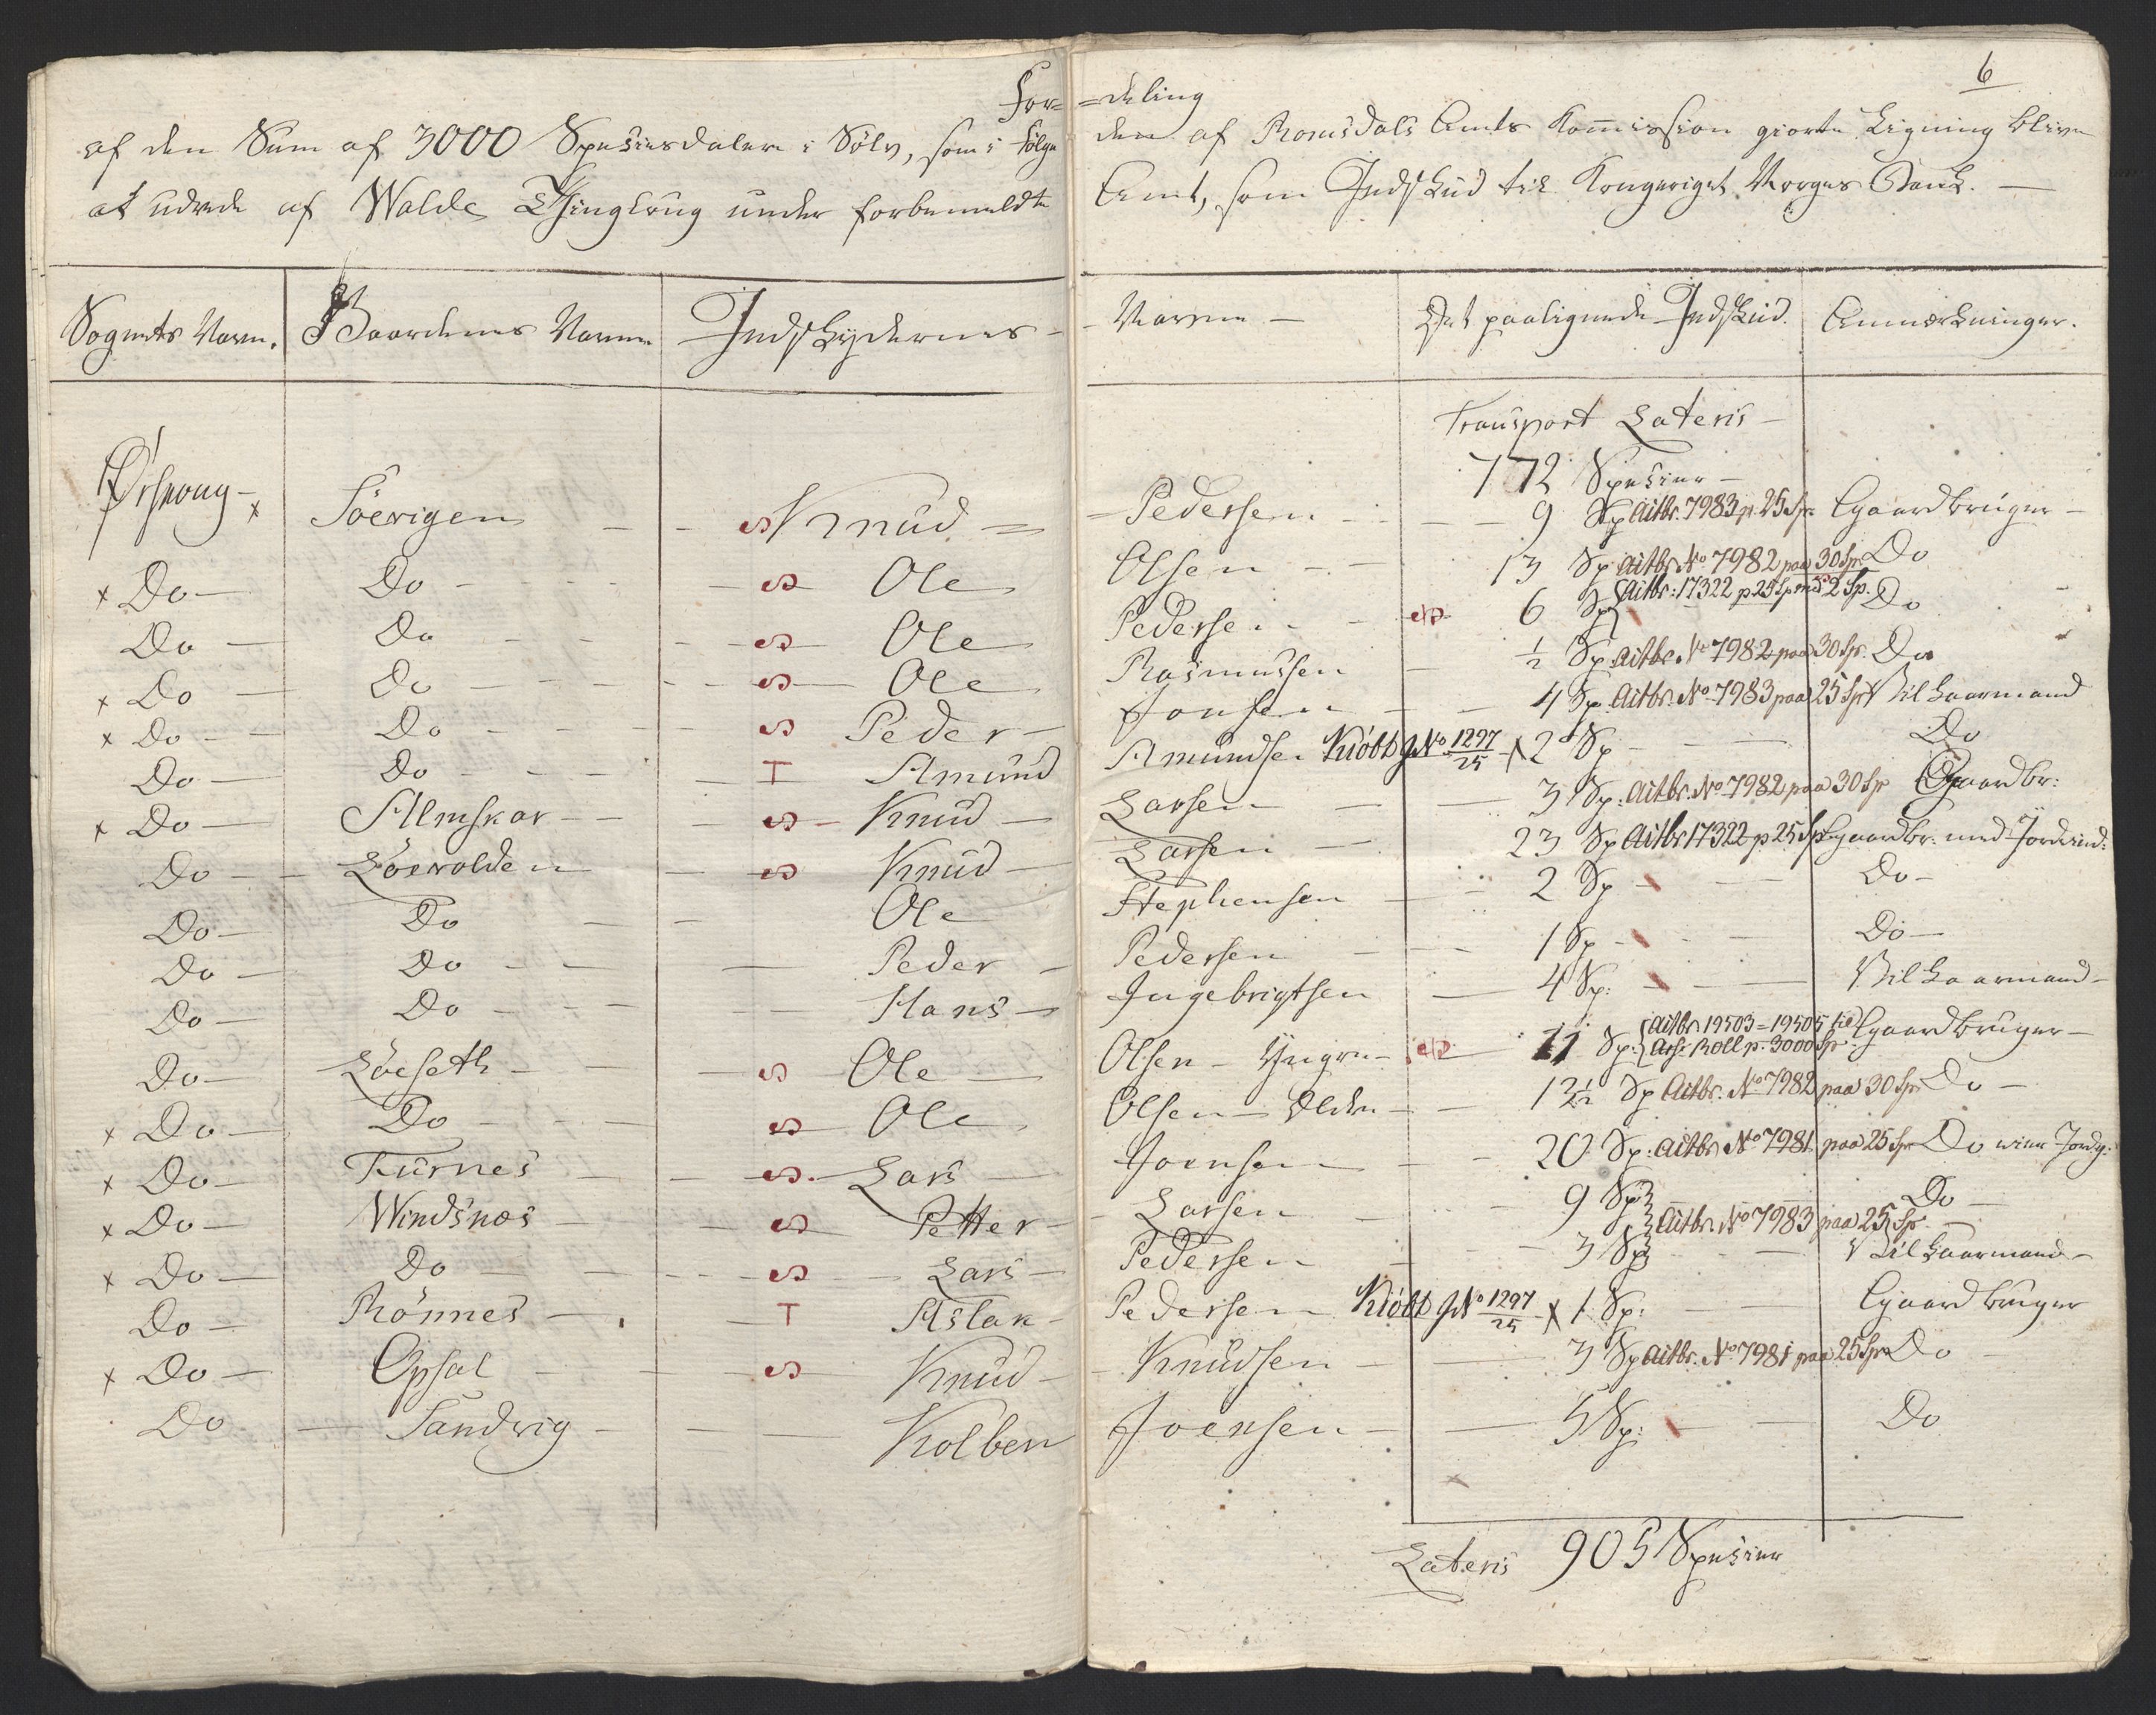 6
For= =deling
af den Sum af 3000 Spesiesdaler i Sölv, som i Fölge den af Romsdals Amts Kommission giorte Ligning bliver
at udrede af Walde Thinglaug under forbemeldte Amt, som Indskud til Kongeriget Norges Bank. —
Sognets Navn. Gaardenes Navne Indskydernes - Navne — Det paalignede Indskud. Anmærkninger.
Transport Lateris —
772 Spesier —
x Söevigen — - S Knud = Pedersen - - — 9 Sp Aitbr. 7983 p. 25 Sp. Gaardbruger —
x Do — Do - - - — S Ole Olsen - - 13 Sp: Aitbr. No 7982 paa 30 Sp. Do
Do — Do - - - S Ole Pedersen - 6 Sp { Aitbr: 17322 p 25 Sp 2 Sp. Do
x Do — Do - - - S Ole Rasmussen — ½ Sp. Aitbr. No 7982 paa 30 Sp. Do
x Do — Do - - - S Peder — Jonsen — 4 Sp. Aitbr. No 7983 paa 25 Sp Vilkaarmand
Do — Do - - - T Amund Amundsen Kiöbt No 1297/25 x 2 Sp - — Do
x Do — Almskar - - S Knud — Larsen — 3 Sp: Aitbr. No 7982 paa 30 Sp Gaardbr:
Do — Löevolden — S Knud — Larsen — 23 Sp Aitbr 17322 p 25 Sp Gaardbr. med
Do — Do — Ole Stephensen - 2 Sp — Do -
Do — Do - — Peder - Pedersen - 1 Sp - — Do —
Do — Do - - Hans — Ingebrigtsen — 4 Sp: - — Vilkaarmand —
Do — Löeseth - — S Ole — Olsen - Yngre - 11 Sp: { Aitbr 19503 = 19505 til Gaardbruger —
Roll p. 3000 Sp
x Do — Do - - - S Ole Olsen — Elder - 12½ Sp Aitbr. No 7982 paa 30 Sp. Do —
x Do — Turnes - — S. Lars — Joensen — 20 Sp: Aitbr. No 7981 paa 25 Sp Do
x Do — Windsnes - — S Petter — Larsen — 9 Sp } Do —
Aitbr. No 7983 paa 25 Sp.
x Do — Do — S Lars — Pedersen — 3 Sp } Vilkaarmand —
Do — Rönnes — T Aslak - Pedersen Kiöbt No 1297/25 x 1 Sp: — Gaardbruger
x Do — Opsal - — S Knud — Knudsen — 3 Sp Aitbr. No 7981 paa 25 Sp Do —
Do — Sandvig - — Kolben Joensen — 5 Sp: — Do
Lateris 905 Spesier